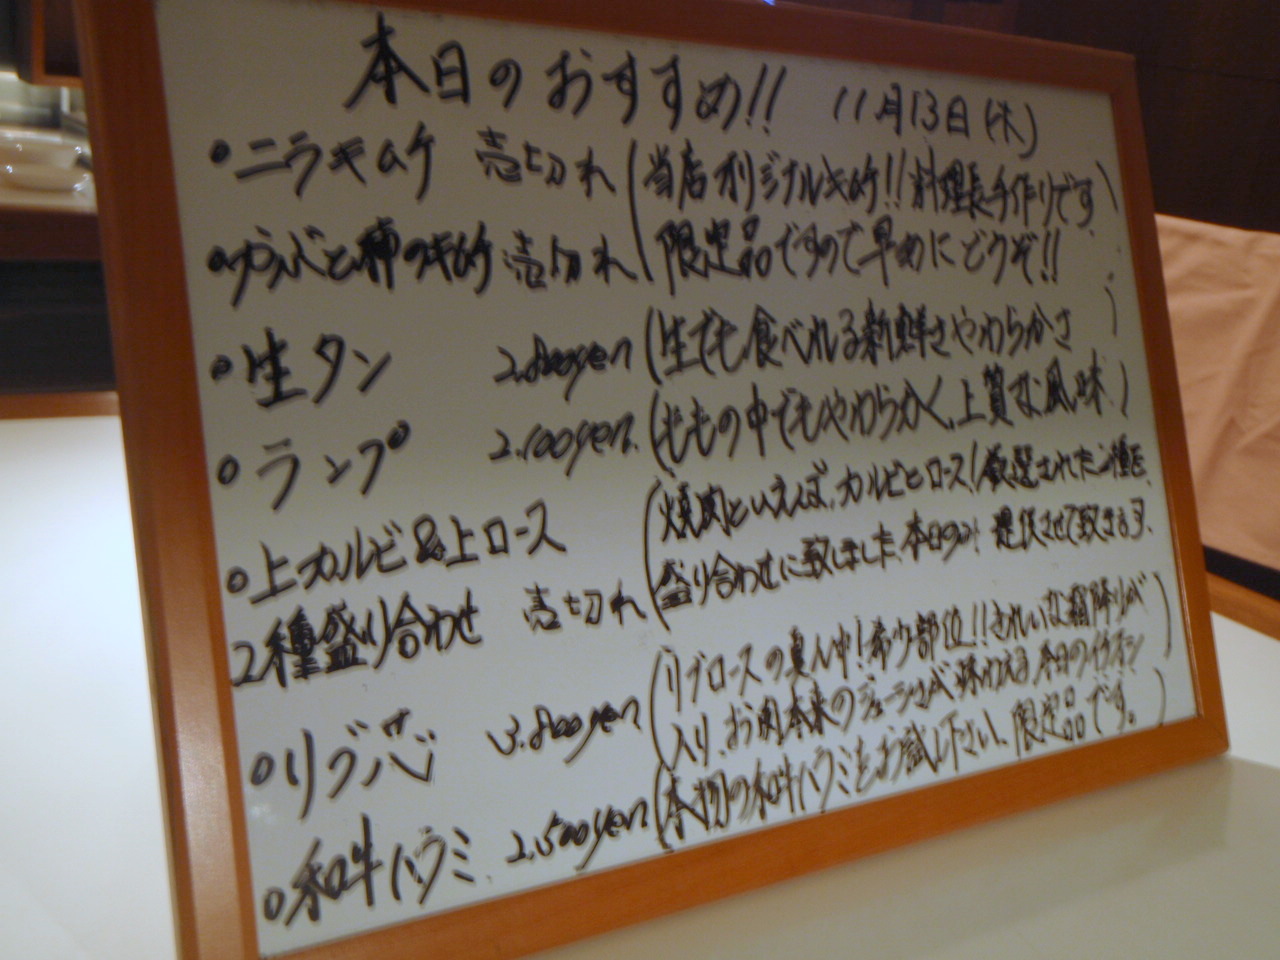 本日のおすすめ!! 11月13日(木)
・ニラキムチ 売切れ (当店オリジナルキムチ!! 料理長手作りです
・かぶと柿のキムチ 売切れ 限定品ですので早めにどうぞ!!)
・生タン 2.800yen (生でも食べれる新鮮さやわらかさ)
・ランプ 2.100yen. (ももの中でもやわらかく、上質な風味)
・上カルビ&上ロース (焼肉といえば、カルビとロース!厳選された二種を、
2種盛り合わせ 売切れ 盛り合わせに致しました、本日のみ! 提供させて致します、
・リブ芯 3.800yen (リブロースの真ん中!希少部位!!きれいな霜降りが
入り、お肉本来のジューシーさが味わえる 本日のイチオシ)
・和牛ハラミ. 2.500yen (本物の和牛ハラミをお試し下さい、限定品です。)